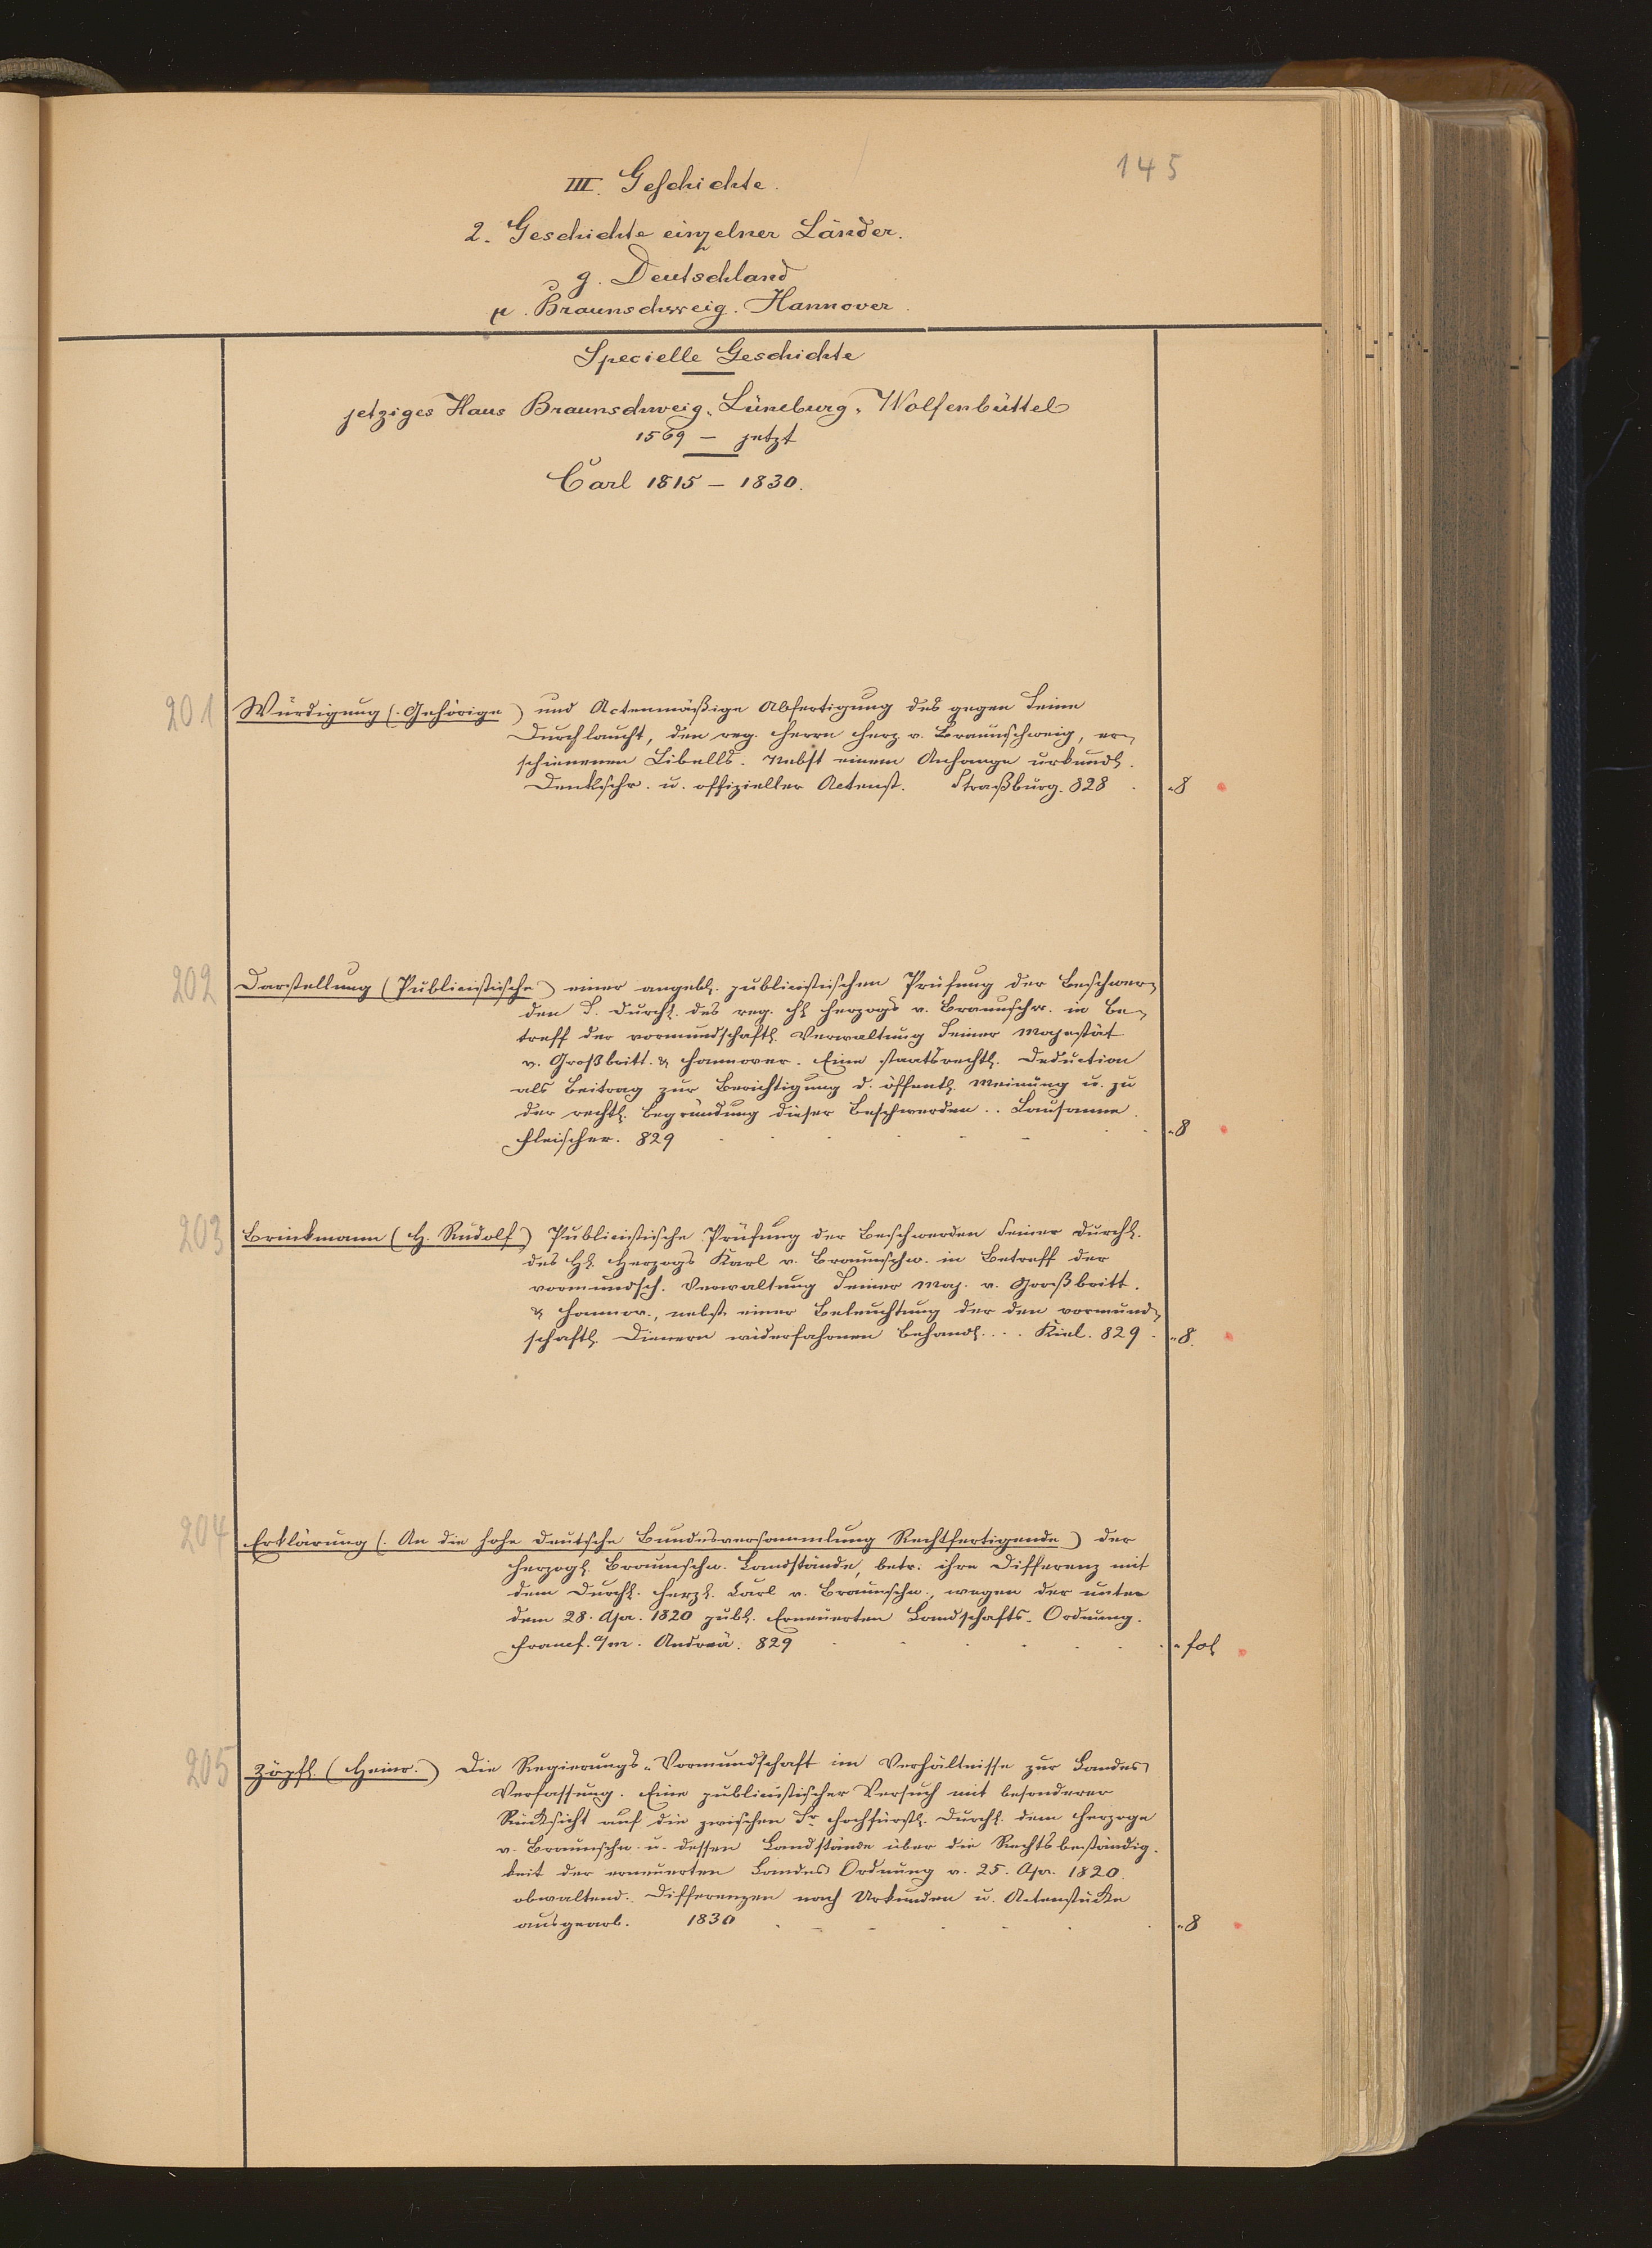 145
III. Geschichte.
2. Geschichte einzelner Länder.
g. Deutschland
μ. Braunschweig. Hannover.
Specielle Geschichte
jetziges Haus Braunschweig-Lüneburg-Wolfenbüttel
1569 – jetzt
Carl 1815 – 1830.
201 Würdigung (Gehörige) und Actenmäßige Abfertigung des gegen Seine
Durchlaucht, den reg. Herrn Herz. v. Braunschweig, er-
schienenen Libells. Nebst einem Anhange urkundl.
Denkschr. u. offizieller Actenst. Straßburg. 828 . -8
202 Darstellung (Publicistische) einer angebl. publicistischen Prüfung der Beschwer-
den S. Durchl. des reg. HH Herzogs v. Braunschw. in Be-
treff der vormundschaftl. Verwaltung Seiner Majestät
v. Großbritt. & Hannover. Eine staatsrechtl. Deduction
als Beitrag zur Berichtigung d. öffentl. Meinung u. zu
der rechtl. Begründung dieser Beschwerden .. Lausanne.
Fleischer. 829 -8
203 Brinkmann (H. Rudolf) Publicistische Prüfung der Beschwerden Seiner Durchl.
des HH. Herzogs Karl v. Braunschw. in Betreff der
vormundsch. Verwaltung Seiner Maj. v. Großbritt.
& Hannov., nebst einer Beleuchtung der den vormund-
schaftl. Dienern widerfahrnen Behandl.... Kiel. 829. -8.
204 Erklärung (An die hohe deutsche Bundesversammlung Rechtfertigende) der
Herzogl. Braunschw. Landstände, betr. ihre Differenz mit
dem Durchl. Herz. Carl v. Braunschw., wegen der unter
dem 28. Apr. 1820 publ. Erneuerten Landschafts-Ordnung.
Francf. a/m. Andreä. 829 -fol
205 Zöpfl. (Heinr.) Die Regierungs-Vormundschaft im Verhältnisse zur Landes
Verfassung. Eine publicistischer Versuch mit besonderer
Rücksicht auf die zwischen Sr. Hochfürstl. Durchl. dem Herzoge
v. Braunschw. u. dessen Landstände über die Rechtsbeständig-
keit der erneuerten Landes Ordnung v. 25. Apr. 1820.
obwaltend. Differenzen nach Urkunden u. Actenstücke
ausgearb. 1830 -8